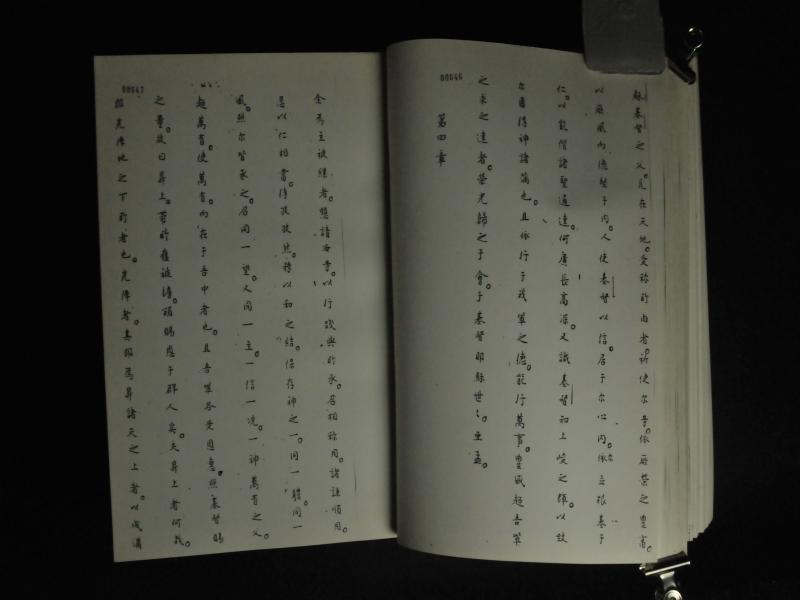 00646
穌基督之父。凡在天地。受祢所由者。祈使尔等。依厥榮之豐富。
以厥風內德堅于內人。使基督以信居于尔心內。尔依立根基于
仁。以能偕諸聖通達何廣長高深。又識基督和上峻之以致
尔得神諸滿也。且依行于我軰之德。能行萬事。豐盛超吾軰
之求之達者。榮光歸之于會。于基督耶穌世〻。亚孟。
第四章
00647
今為主被縲者。懇請汝等。以行致與所承。召相称用。諸謙順用。
忍以仁相當。得孜孜然。務以和之結。保存神之一。同一體同一
風。照尔皆承之。召同一望。又同一主。一信一洗。一神萬有之父。
超萬有。使萬有。內在于吾中者也。且吾軰各受恩惠。照基督賜
之量。故曰昇上。帶所舊被擄。頒賜恩于群人矣。夫昇上者何哉
先降地之下所者也。先降者。真昇諸天之上者。以成滿